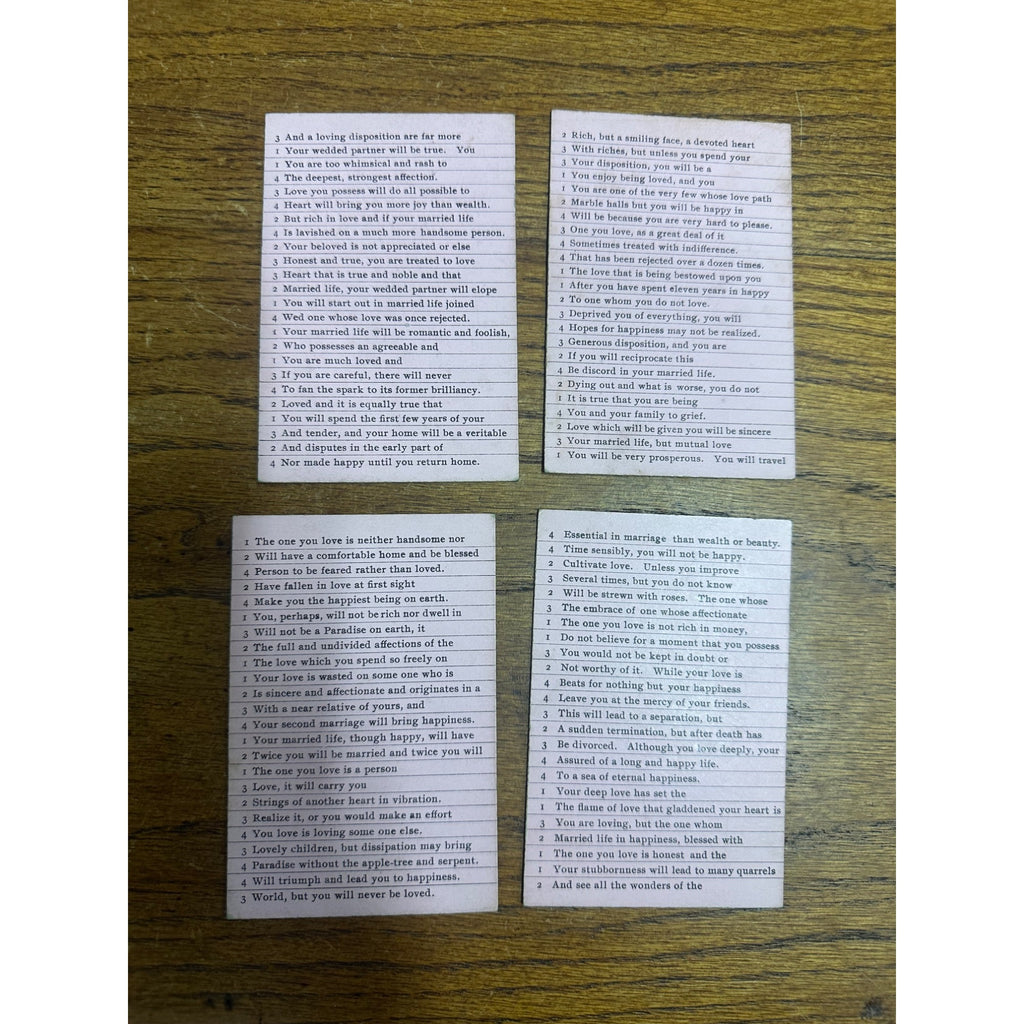 3 And a loving disposition are far more
1 Your wedded partner will be true. You
1 You are too whimsical and rash to
4 The deepest, strongest affection.
3 Love you possess will do all possible to
4 Heart will bring you more joy than wealth.
2 But rich in love and if your married life
4 Is lavished on a much more handsome person.
2 Your beloved is not appreciated or else
3 Honest and true, you are treated to love
3 Heart that is true and noble and that
2 Married life, your wedded partner will elope
1 You will start out in married life joined
4 Wed one whose love was once rejected.
1 Your married life will be romantic and foolish,
2 Who possesses an agreeable and
1 You are much loved and
3 If you are careful, there will never
4 To fan the spark to its former brilliancy.
2 Loved and it is equally true that
1 You will spend the first few years of your
3 And tender, and your home will be a veritable
2 And disputes in the early part of
4 Nor made happy until you return home.
2 Rich, but a smiling face, a devoted heart
3 With riches, but unless you spend your
3 Your disposition, you will be a
1 You enjoy being loved, and you
1 You are one of the very few whose love path
2 Marble halls but you will be happy in
4 Will be because you are very hard to please.
3 One you love, as a great deal of it
4 Sometimes treated with indifference.
4 That has been rejected over a dozen times.
1 The love that is being bestowed upon you
1 After you have spent eleven years in happy
2 To one whom you do not love.
3 Deprived you of everything, you will
4 Hopes for happiness may not be realized.
3 Generous disposition, and you are
2 If you will reciprocate this
4 Be discord in your married life.
2 Dying out and what is worse, you do not
1 It is true that you are being
4 You and your family to grief.
2 Love which will be given you will be sincere
3 Your married life, but mutual love
1 You will be very prosperous. You will travel
1 The one you love is neither handsome nor
2 Will have a comfortable home and be blessed
4 Person to be feared rather than loved.
2 Have fallen in love at first sight
4 Make you the happiest being on earth.
1 You, perhaps, will not be rich nor dwell in
3 Will not be a Paradise on earth, it
2 The full and undivided affections of the
1 The love which you spend so freely on
1 Your love is wasted on some one who is
2 Is sincere and affectionate and originates in a
3 With a near relative of yours, and
4 Your second marriage will bring happiness.
1 Your married life, though happy, will have
2 Twice you will be married and twice you will
1 The one you love is a person
3 Love, it will carry you
2 Strings of another heart in vibration.
3 Realize it, or you would make an effort
4 You love is loving some one else.
3 Lovely children, but dissipation may bring
4 Paradise without the apple-tree and serpent.
4 Will triumph and lead you to happiness.
3 World, but you will never be loved.
4 Essential in marriage than wealth or beauty.
4 Time sensibly, you will not be happy.
2 Cultivate love. Unless you improve
3 Several times, but you do not know
2 Will be strewn with roses. The one whose
3 The embrace of one whose affectionate
1 The one you love is not rich in money,
1 Do not believe for a moment that you possess
3 You would not be kept in doubt or
2 Not worthy of it. While your love is
4 Beats for nothing but your happiness
4 Leave you at the mercy of your friends.
3 This will lead to a separation, but
2 A sudden termination, but after death has
3 Be divorced. Although you love deeply, your
4 Assured of a long and happy life.
4 To a sea of eternal happiness.
1 Your deep love has set the
1 The flame of love that gladdened your heart is
3 You are loving, but the one whom
2 Married life in happiness, blessed with
1 The one you love is honest and the
1 Your stubbornness will lead to many quarrels
2 And see all the wonders of the